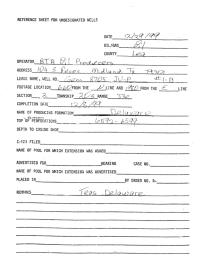 REFERENCE SHEET FOR UNDESIGNATED WELLS
DATE 12/29/99
OIL/GAS Oil
COUNTY Lea
OPERATOR BTA Oil Producers
ADDRESS 104 S Pecos Midland Tx 79701
LEASE NAME, WELL NO. Gem 8705 JV-P #
FOOTAGE LOCATION 660 FROM THE N LINE AND FROM THE E LINE
SECTION 2 TOWNSHIP RANGE 33E
COMPLETION DATE 12/8/99
NAME OF PRODUCING FORMATION Delaware
TOP OF PERFORATIONS
DEPTH TO CASING SHOE
C-123 FILED
NAME OF POOL FOR WHICH EXTENSION WAS ASKED
ADVERTISED FOR HEARING CASE NO.
NAME OF POOL FOR WHICH EXTENSION WAS ADVERTISED
PLACED IN BY ORDER NO. R-
REMARKS Teas Delaware